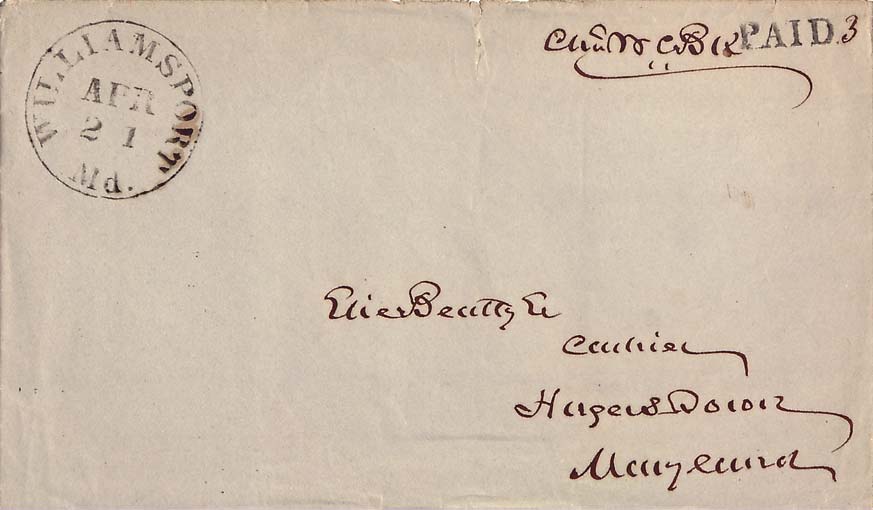 WILLIAMSPORT
APR
21
Md.
PAID 3
Elie Beatty
Cashier
Hagers Town
Maryland